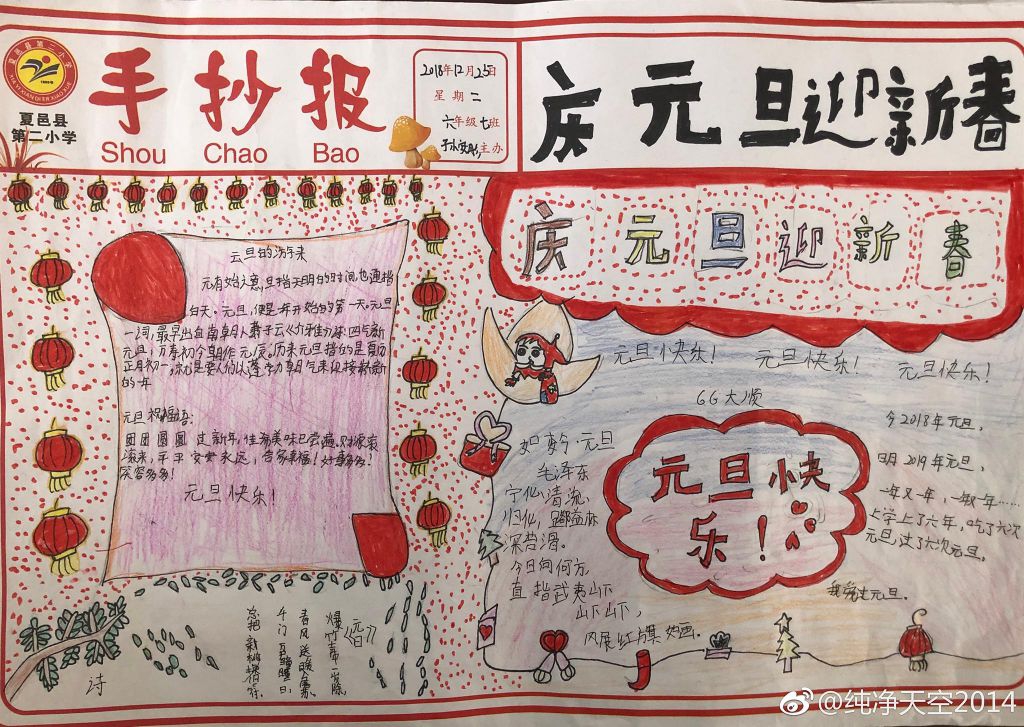 夏邑县第二小学
夏邑县
第二小学
手抄报
Shou Chao Bao
2018年12月25日
星期二
六年级七班
主办
庆元旦迎新春
庆元旦迎新春
元旦的
元有始之意,旦指天明的时间,也通指
白天。元旦,便是一年开始的第一天。元旦
一词,最早出自南朝人萧子云《介雅》诗:四气新
元旦,万寿初今朝。历来元旦指的是夏历
正月初一。
的一年
元旦祝福语:
团团圆圆过新年,佳肴美味已尝遍。财源滚
滚来,平平安安永远,
笑容多多!
元旦快乐!
元旦快乐! 元旦快乐! 元旦快乐!
66大顺
如梦令·元旦
毛泽东
宁化、清流、
归化,路隘林
深苔滑。
今日向何方,
直指武夷山下
山下山下,
风展红旗如画。
元旦快
乐!
今2018年元旦,
明2019年元旦,
一年又一年,一年又一年……
上学上了六年,吃了六次
元旦,过了六次元旦。
我爱过元旦。
《元日》
爆竹声中一岁除
春风送暖
千门万户曈曈日
总把新桃换旧符
诗
@纯净天空2014